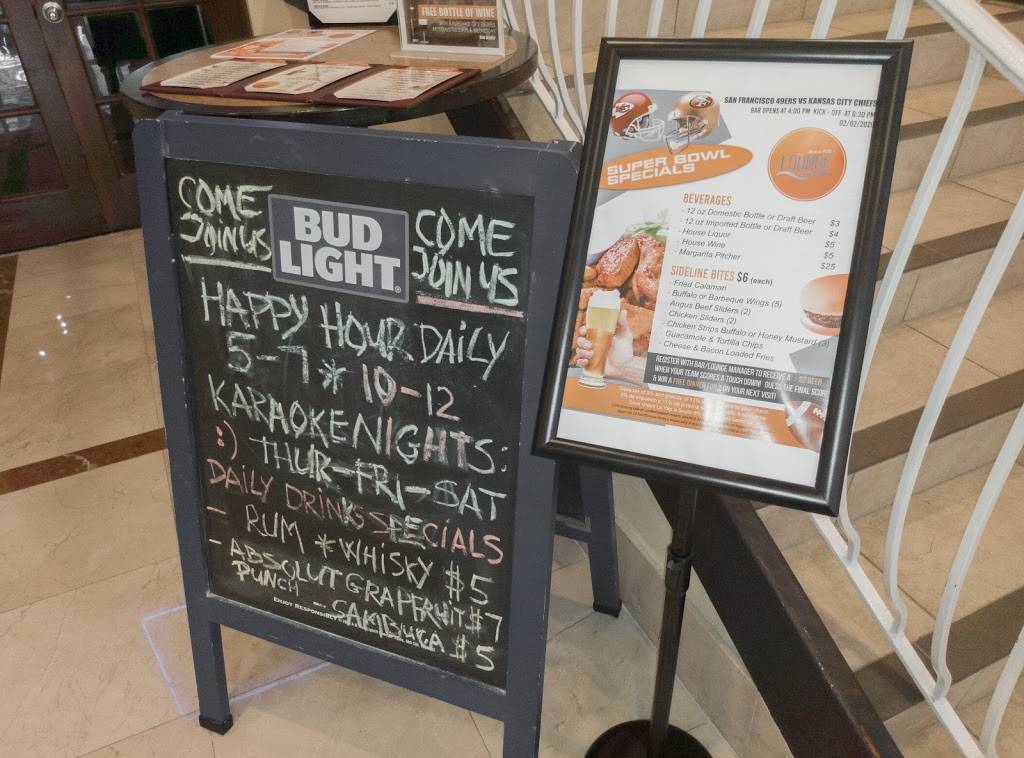 FREE BOTTLE OF WINE
COME
JOIN US
BUD
LIGHT
COME
JOIN US
HAPPY HOUR DAILY
5-7 * 10-12
KARAOKE NIGHTS:
:) THUR-FRI-SAT
DAILY DRINKS SPECIALS
- RUM * WHISKY $5
- ABSOLUT GRAPFRUIT $7
PUNCH
SAMBUCA $5
ENJOY RESPONSIBLY
SAN FRANCISCO 49ERS VS KANSAS CITY CHIEFS
BAR OPENS AT 4:00 PM KICK - OFF AT 6:30 PM
02/02/2020
SUPER BOWL
SPECIALS
LOUNGE
BEVERAGES
· 12 oz Domestic Bottle or Draft Beer $3
· 12 oz Imported Bottle or Draft Beer $4
· House Liquor $5
· House Wine $5
· Margarita Pitcher $25
SIDELINE BITES $6 (each)
· Fried Calamari
· Buffalo or Barbeque Wings (5)
· Angus Beef Sliders (2)
· Chicken Sliders (2)
· Chicken Strips Buffalo or Honey Mustard (3)
· Guacamole & Tortilla Chips
· Cheese & Bacon Loaded Fries
REGISTER WITH BAR/LOUNGE MANAGER TO RECEIVE A $2 BEER
WHEN YOUR TEAM SCORES A TOUCH DOWN! GUESS THE FINAL SCORE
& WIN A FREE DINNER FOR 2 ON YOUR NEXT VISIT!